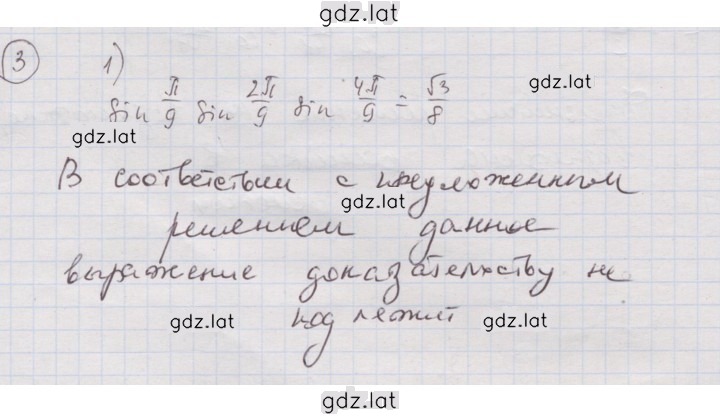 gdz.lat
3 1)
sin π/9 sin 2π/9 sin 4π/9 = √3/8
gdz.lat
gdz.lat
В соответствии с предложенным
gdz.lat
решением данное
выражение доказательству не
gdz.lat подлежит gdz.lat
gdz.lat